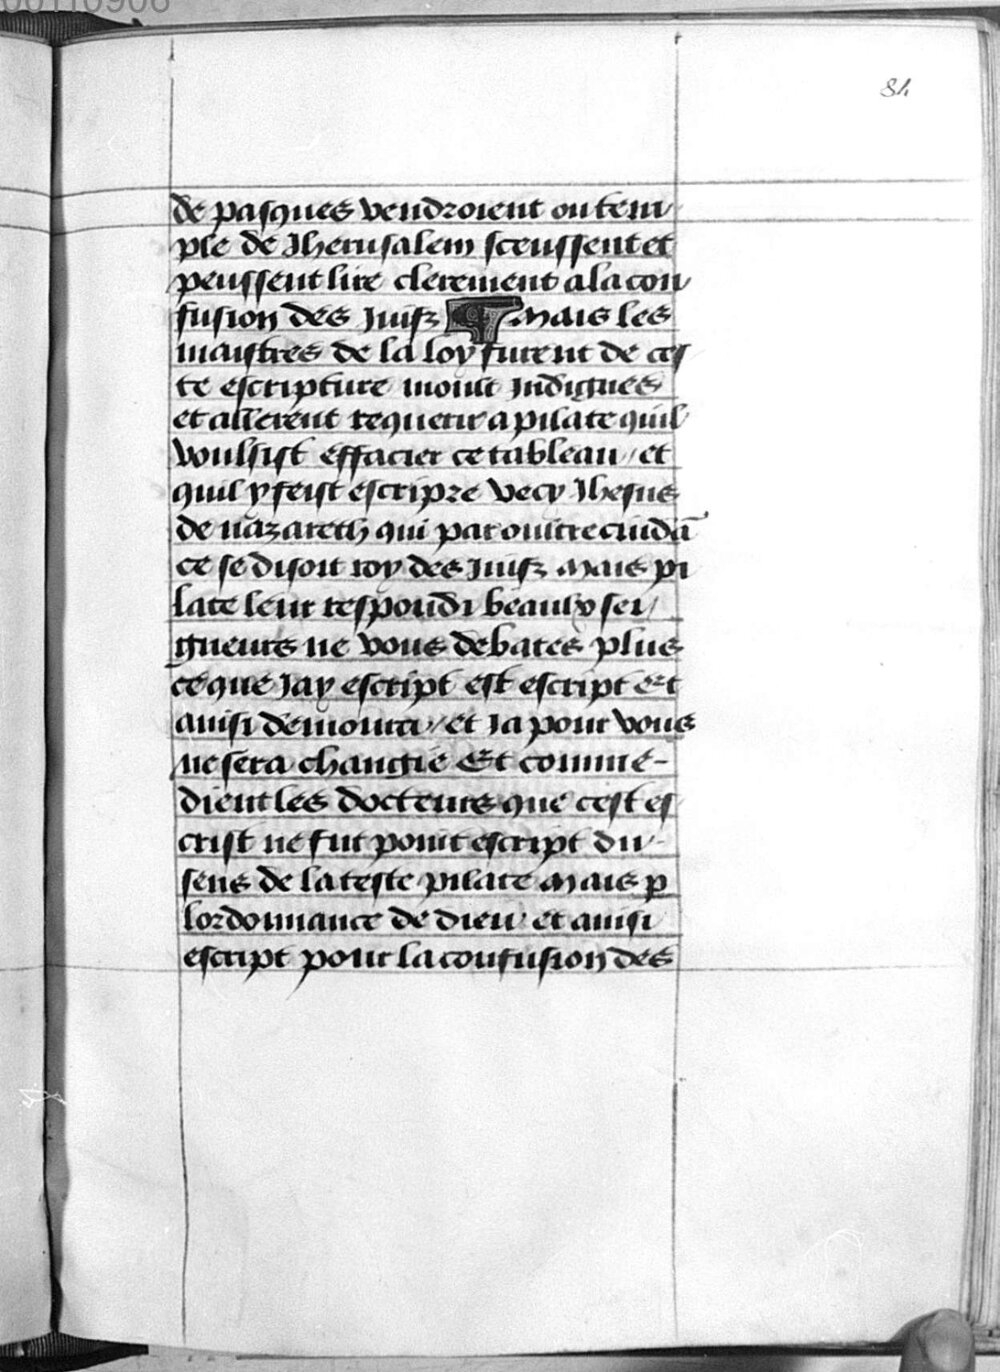 84
de pasques vendroient ou tem
ple de Jherusalem sceussent et
peussent lire clerement a la con
fusion des Juifz ¶ Mais les
maistres de la loy furent de ces
te escripture moult Indignes
et allerent requerir a pilate quil
voulsist effacier ce tableau / et
quil y feist escripre vecy Jhesus
de nazareth qui par oultre cuidā
ce se disoit roy des Juifz Mais pi
late leur respondi beaulx sei /
gneurs ne vous debates plus
ce que Jay escript est escript Et
ainsi demoura / et Ja pour vous
ne sera changie Et comme -
dient les docteurs que cest es
cript ne fut point escript du
sens de la teste pilate Mais p̱
lordonnance de dieu et ainsi
escript pour la confusion des